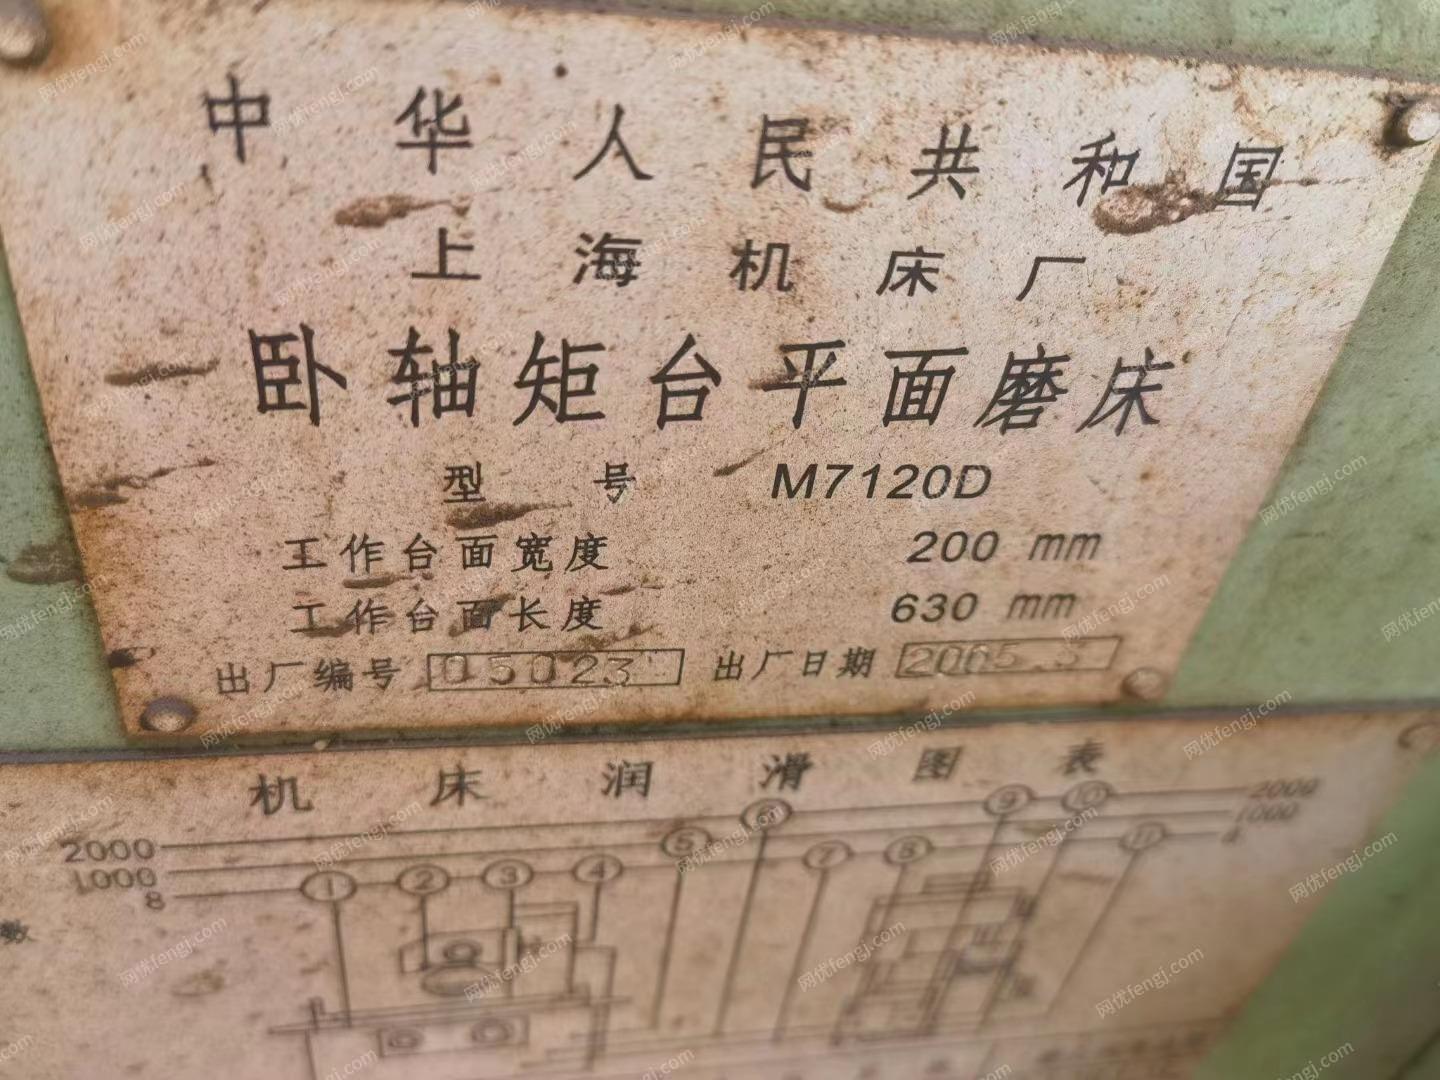 中华人民共和国
上海机床厂
卧轴矩台平面磨床
型号 M7120D
工作台面宽度 200 mm
工作台面长度 630 mm
出厂编号 05023 出厂日期 2005.3
机床润滑图表
2000 ⑤ ⑥ ⑨ ⑩ 2000
1000 1000
8 ① ② ③ ④ ⑦ ⑧ ⑪ 4
数
网优fengj.com